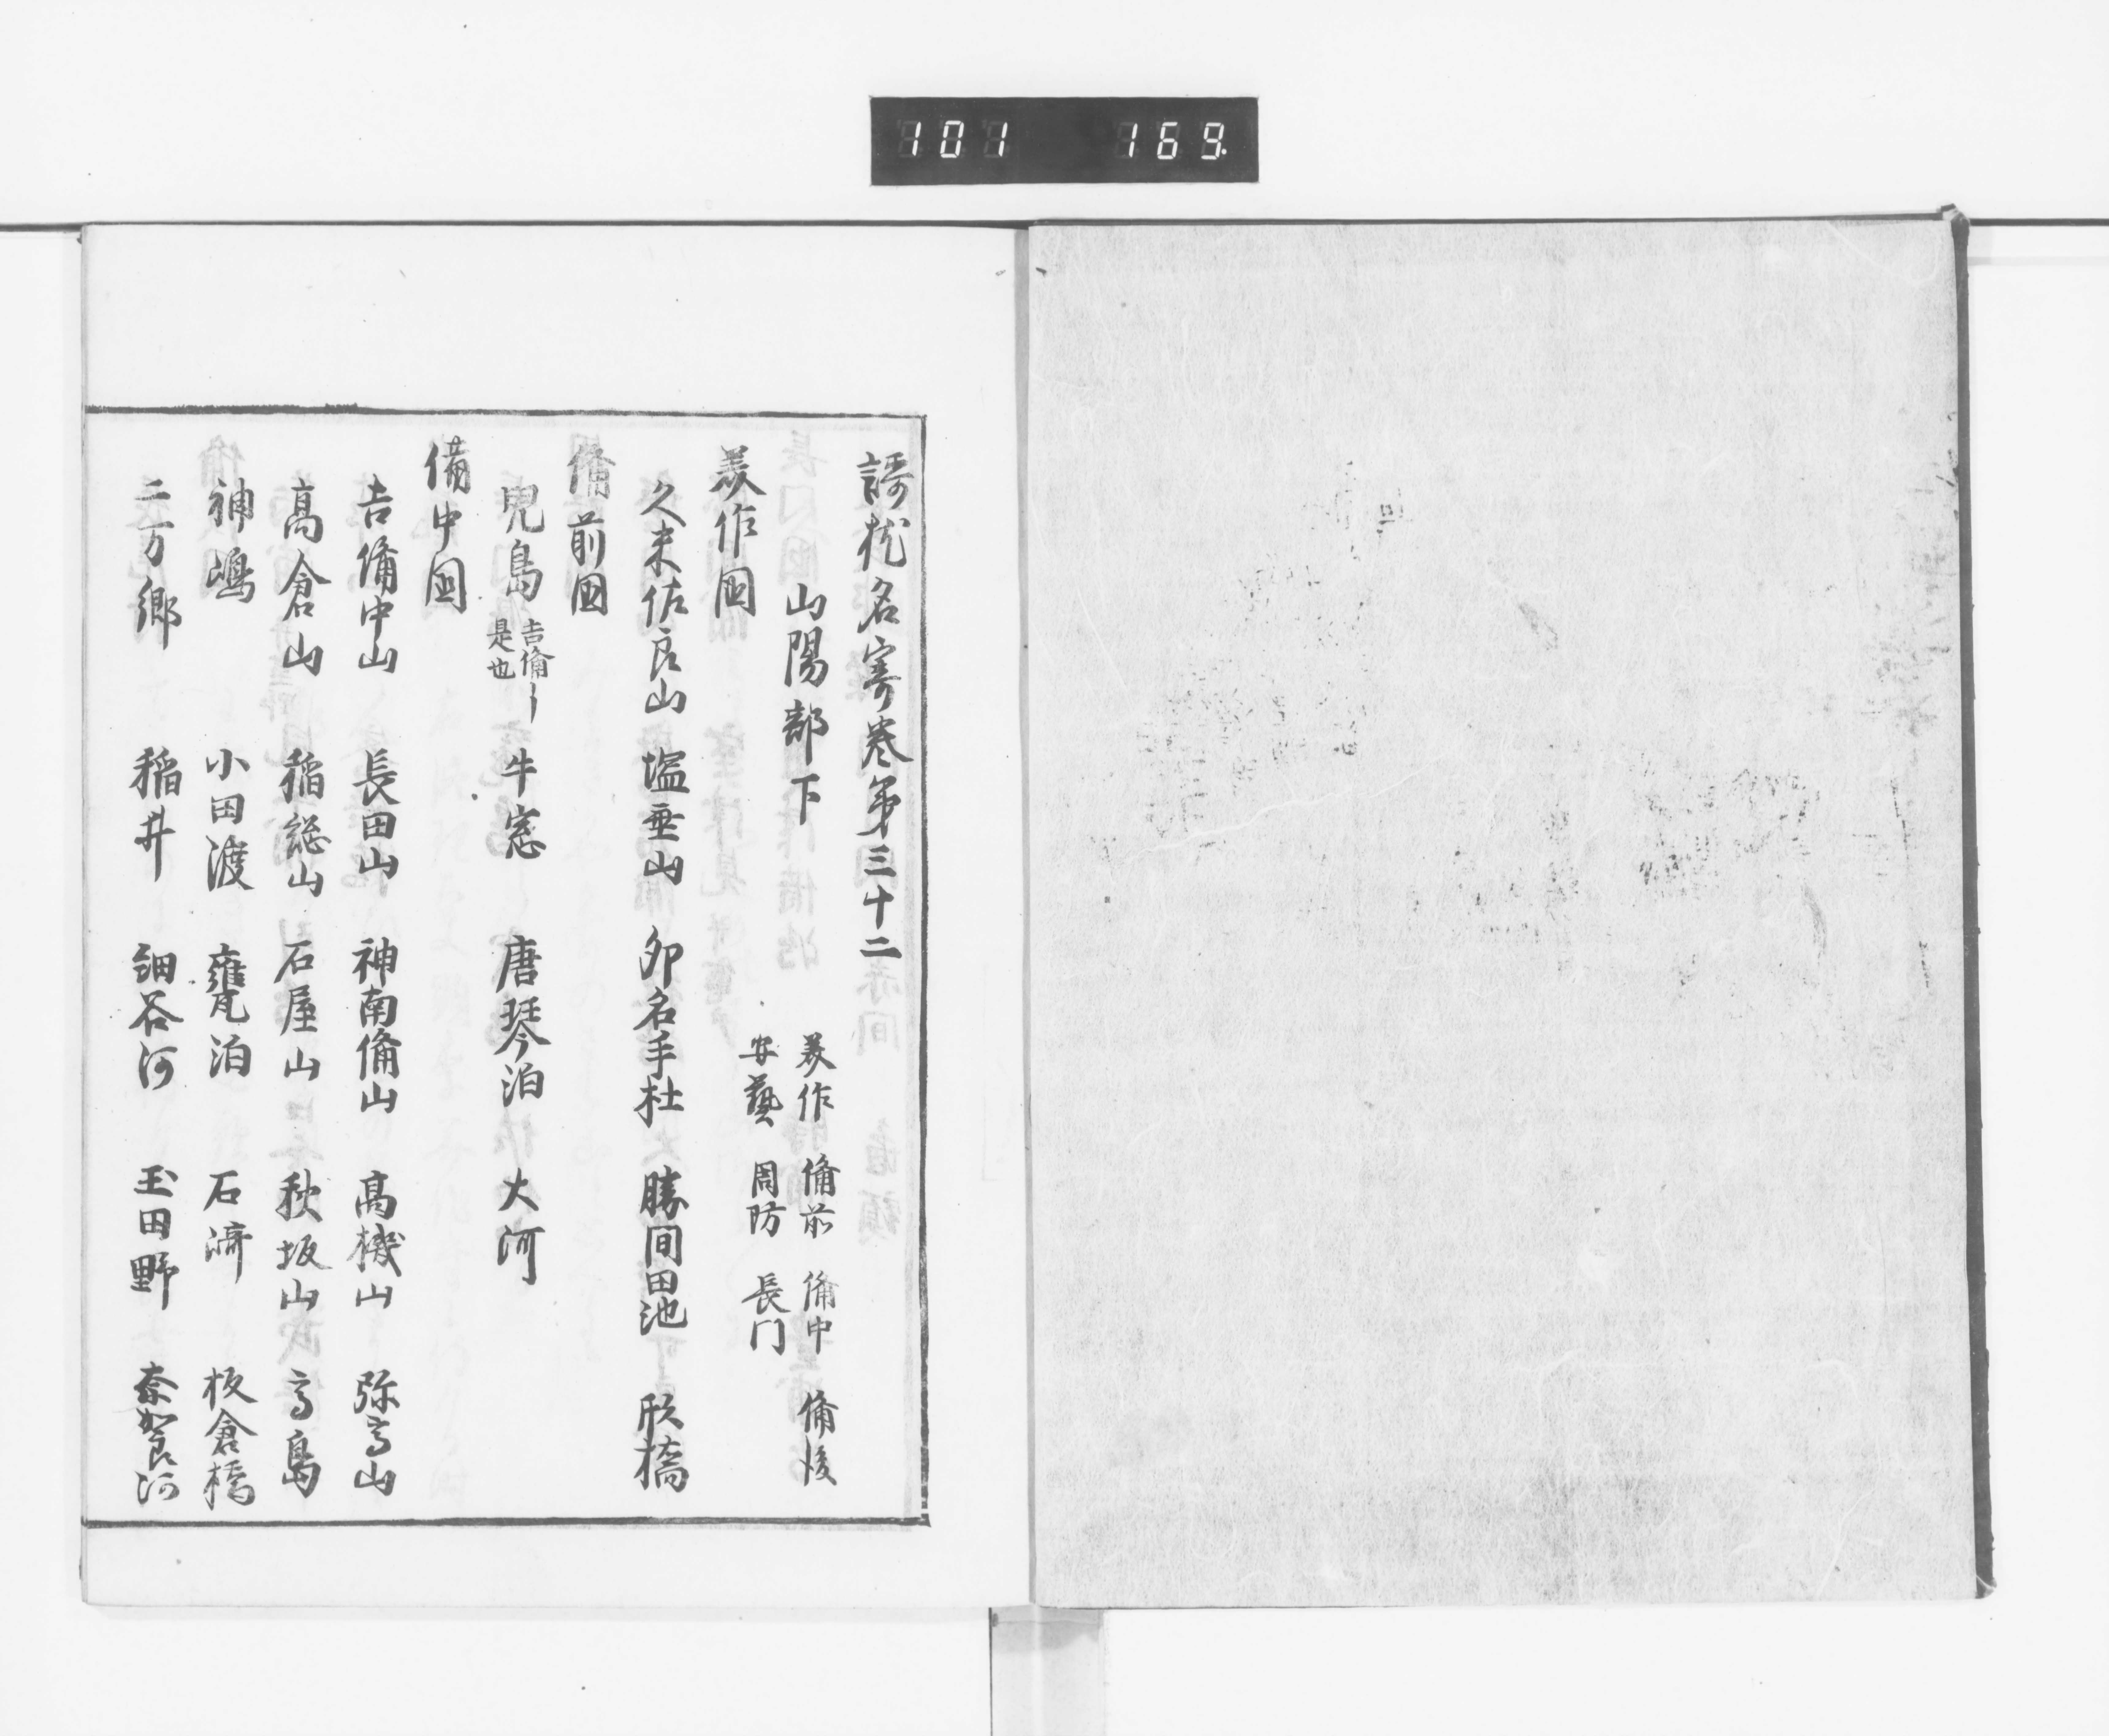 101 169.
謌枕名寄巻第三十二
山陽部下 美作 備前 備中 備後
安藝 周防 長门
美作國
久米佐良山 塩垂山 卯名手杜 勝间田池 橋
備前國
児島 吉備 是也 牛窓 唐琴泊 大河
備中國
吉備中山 長田山 神南備山 高機山 弥高山
高倉山 稲総山 石屋山 秋坂山 高島
神嶋 小田渡 甕泊 石 板倉橋
二万郷 稲井 細谷河 玉田野 奈賀河